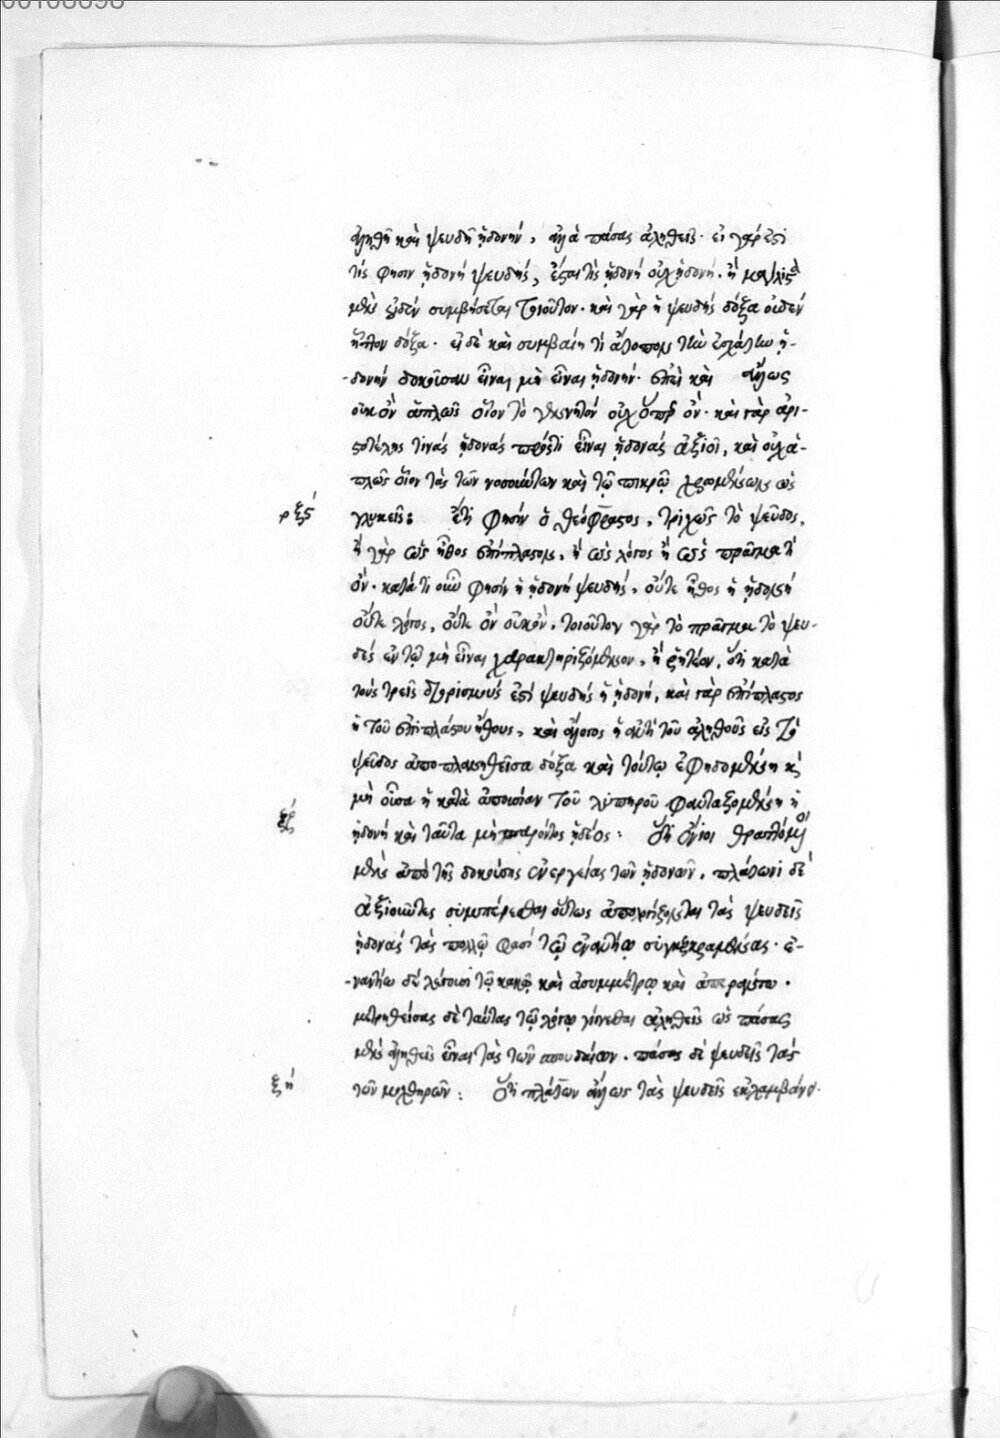 ἀληθῆ καὶ ψευδῆ ἡδονήν, ἀλλὰ πάσας ἀληθεῖς· εἰ γάρ ἐστί
τίς φησιν ἡδονή ψευδής, ἔσται τίς ἡδονή οὐχ ἡδονή. ἢ μάλιστα
μὲν οὐδέν συμβήσεται τοιοῦτον· καὶ γὰρ ἡ ψευδής δόξα οὐδέν
ἧττον δόξα· εἰ δὲ καὶ συμβαίη τί ἄτοπον τὴν ἐσχάτην ἡ-
-δονήν δοκοῦσαν εἶναι μὴ εἶναι ἡδονήν· ἐπεὶ καὶ ἄλλως
οὐκ ὂν ἁπλῶς οἷον τὸ γενητόν οὐχ ὅπερ ὄν· καὶ γὰρ ἀρι-
στοτέλης τινάς ἡδονάς πρόςτι εἶναι ἡδονάς ἀξιοῖ, καὶ οὐχ ἁ-
πλῶς οἷον τὰς τῶν νοσούντων καὶ τῷ πικρῷ χρωμένων ὡς
ρξζ γλυκεῖ: ὅτι φησίν ὁ θεόφραστος, τριχῶς τὸ ψεῦδος,
ἢ γὰρ ὡς ἦθος ἐπίπλαστον, ἢ ὡς λόγος ἢ ὡς πρᾶγμα τί
ὄν· κατά τι οὖν φησίν ἡ ἡδονή ψευδής, οὔτε ἦθος ἡ ἡδονή
οὔτε λόγος, οὔτε ὂν οὐκ ὄν, τοιοῦτον γὰρ τὸ πρᾶγμα τὸ ψευ-
δές ἐν τῷ μὴ εἶναι χαρακτηριζόμενον, ἢ ῥητέον, ὅτι κατὰ
τοὺς τρεῖς διορισμούς ἐστί ψευδής ἡ ἡδονή, καὶ γὰρ ἐπίπλαστος
ἡ τοῦ ἐπιπλάστου ἤθους, καὶ ἄλογος ἡ αὐτή τοῦ ἀληθοῦς εἰς τὸ
ψεῦδος ἀποπλανηθεῖσα δόξα καὶ τούτῳ ἐφηδομένη κ
μὴ οὖσα ἡ κατὰ ἀπουσίαν τοῦ λυπηροῦ φανταζομένη ἡ
ἡδονή καὶ ταῦτα μὴ παρόντος ἡδέος: ὅτι ἔνιοι
μὲν ἀπὸ τῆς δοκούσης ἐνεργείας τῶν ἡδονῶν, πλάτωνι δὲ
ἀξιοῦντες συμπέρεσθαι οὕτως ἀποχρήζονται τὰς ψευδεῖς
ἡδονάς τὰς πολλῷ φασί τῷ ἐναντίῳ συγκεκραμένας· ἐ-
-ναντίω δέ λέγουσι τῷ κακῷ καὶ ἀσυμμέτρῳ καὶ ἀπεράντω.
μετρηθείσας δὲ ταύτας τῷ λόγῳ γίνεσθαι ἀληθεῖς ὡς πάσας
μὲν ἀληθεῖς εἶναι τὰς τῶν σπουδαίων. πάσας δὲ ψευδεῖς τάς
ξη τῶν μοχθηρῶν: ὅτι πλάτων ἄλλως τὰς ψευδεῖς ἐκλαμβάνει.